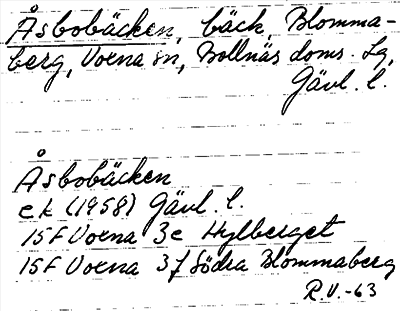 Åsbobäcken, bäck, Blomma-
berg, Voxna sn, Bollnäs doms. Lg,
Gävl. l.
Åsbobäcken
ek (1958) Gävl. l.
15F Voxna 3e Hylberget
15F Voxna 3f Södra Blommaberg
R.V.-63